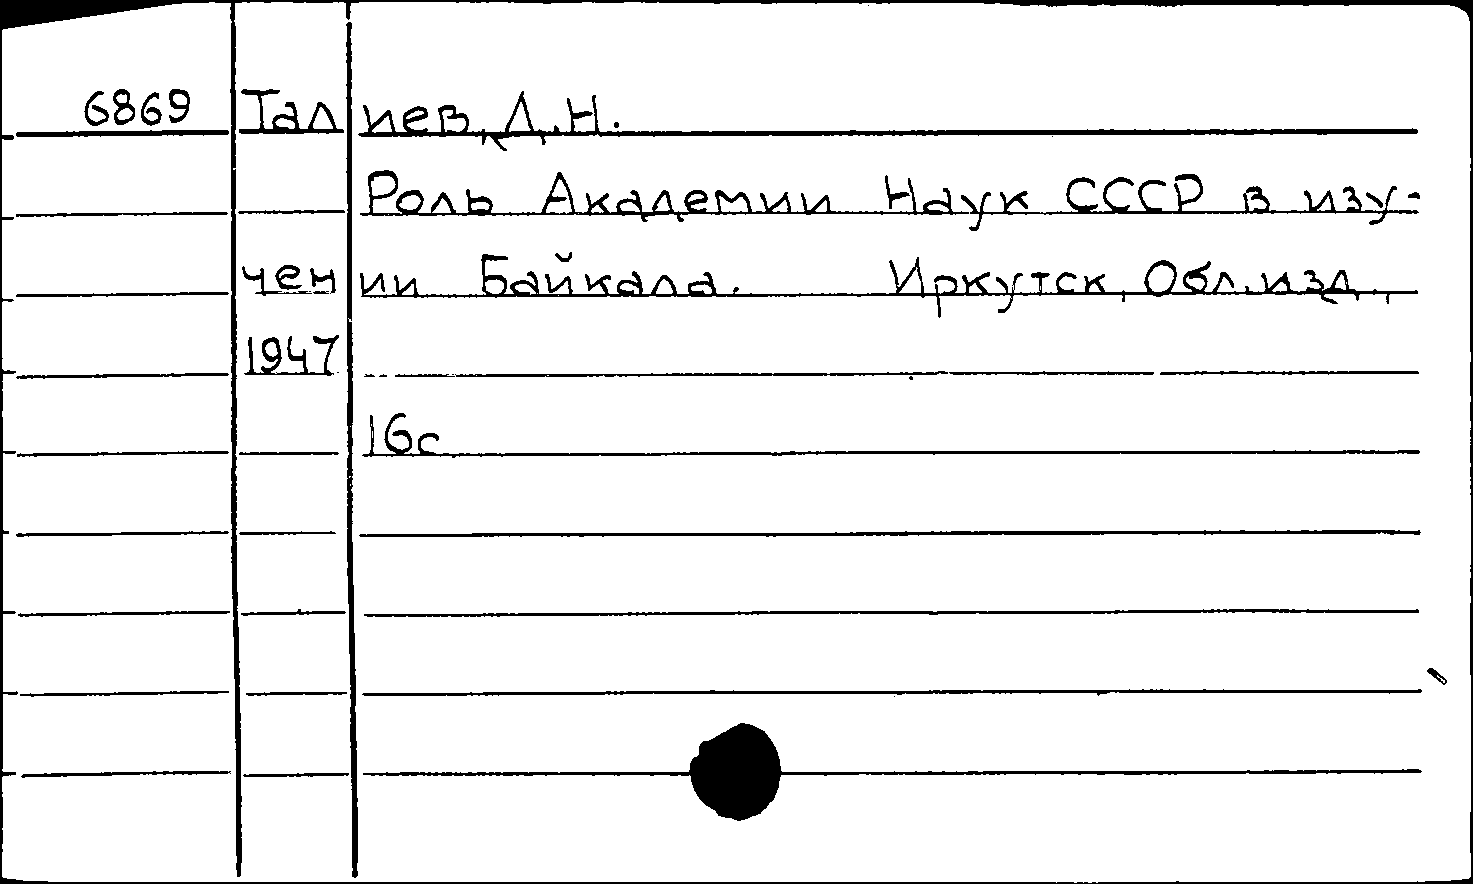 6869 Талиев, Д.Н.
Роль Академии Наук СССР в изу-
чении Байкала. Иркутск, Обл.изд.,
1947
16с